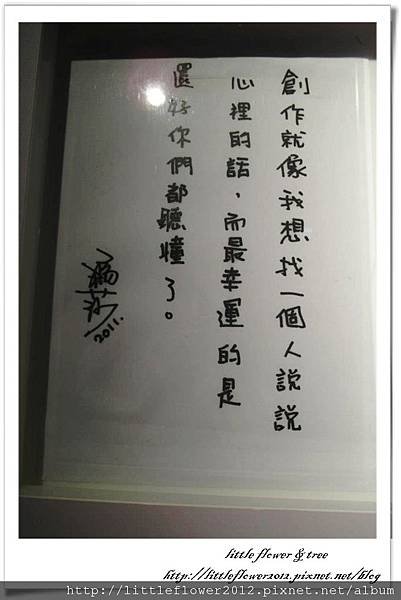 創作就像我想找一個人說說
心裡的話，而最幸運的是
還好你們都聽懂了。
2011.
little flower & tree
http://littleflower2012.pixnet.net/blog
http://littleflower2012.pixnet.net/album